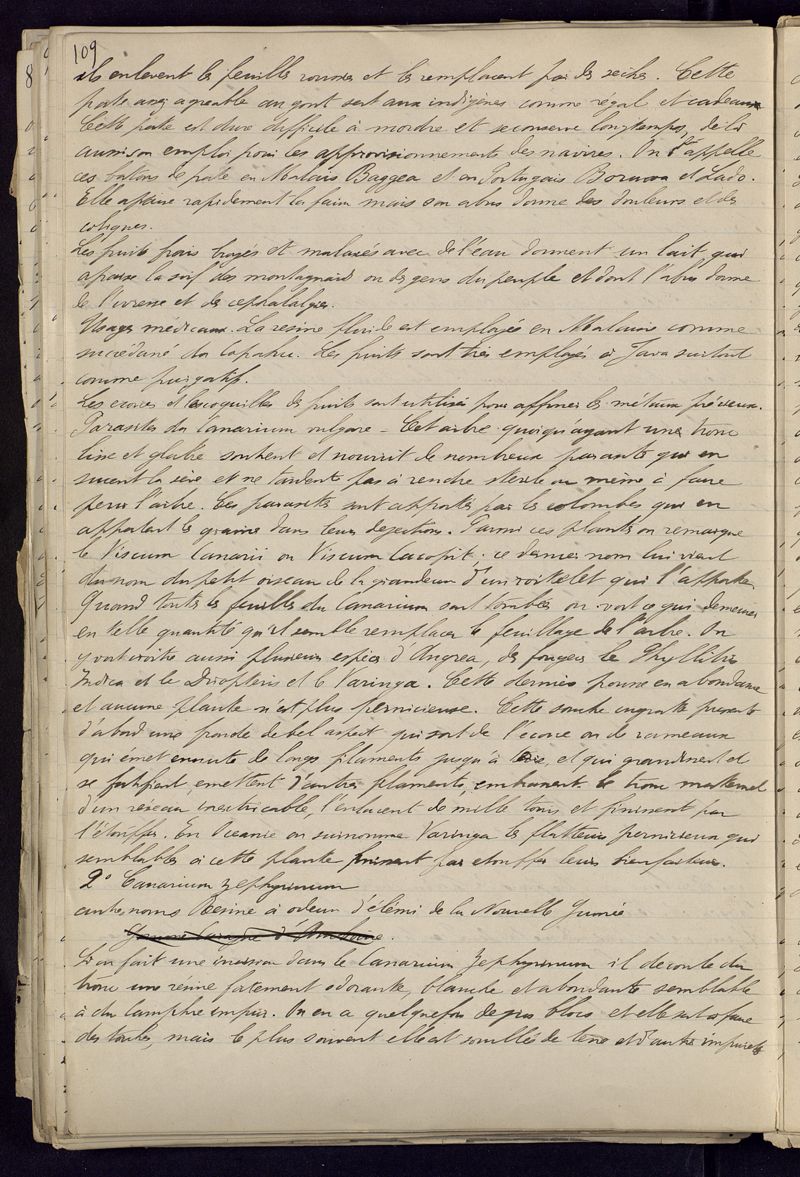 109
ils enlevent les feuilles rousses et les remplacent par des seches. Cette
pate assez agreable au gout sert aux indigènes comme régal et cadeaux
Cette pate est dure difficile à mordre et se conserve longtemps, de là
aussi son emploi pour les approvisionnements des navires. On appelle
ces batons de pate en Malais Baggea et en Portugais et
Elle apaise rapidement la faim mais son abus donne des douleurs et des
coliques.
Les fruits frais broyés et malaxés avec de l'eau donnent un lait qui
apaise la soif des montagnards ou des gens du peuple et dont l'abus donne
de l'ivresse et des cephalalgies.
Usages médicaux. La resine fluide est employée en Malaisie comme
succédané du Copahu. Les fruits sont très employés à Java surtout
comme purgatifs.
Les ecorces et les coquilles des fruits sont utilisées pour affiner les métaux précieux.
Parasites du Canarium vulgare - Cet arbre quoiqu'ayant un tronc
lisse et glabre soutient et nourrit de nombreux parasites qui en
sucent la sève et ne tardent pas à rendre sterile ou même à faire
perir l'arbre. Ces parasites sont apportés par les colombes qui en
apportent les graines dans leurs dejections. Parmi ces plantes on remarque
le Viscum Canarii ou Viscum ; ce dernier nom lui vient
du nom du petit oiseau de la grandeur d'un roitelet qui l'apporte.
Quand toutes les feuilles du Canarium sont tombées on voit ce gui demeurer
en telle quantité qu'il semble remplacer le feuillage de l'arbre. On
y voit croitre aussi plusieurs espèces d'Angrea, des fougeres le Phyllitis
Indica et le Driopteris et le Varinga. Cette derniere pousse en abondance
et aucune plante n'est plus pernicieuse. Cette souche ingrate presente
d'abord une fronde de bel aspect qui sort de l'écorce ou de rameaux
qui émet ensuite de longs filaments jusqu'à terre, et qui grandissent et
se fortifient, emettent d'autres filaments, embrassent le tronc maternel
d'un reseau inextricable, l'enlacent de mille tours et finissent par
l'étouffer. En Oceanie on surnomme Varinga les flatteurs pernicieux qui
semblables à cette plante finissent par etouffer leurs bienfaiteurs.
2° Canarium Zephyrinum
autres noms Resine à odeur d'élémi de la Nouvelle Guinée
d'Amboine.
Si on fait une incision dans le Canarium Zephyrinum il decoule du
tronc une resine fortement odorante, blanche et abondante semblable
à du camphre impur. On en a quelquefois de gros blocs et elle
des toutes, mais le plus souvent elle est souillée de terre et d'autres impuretés